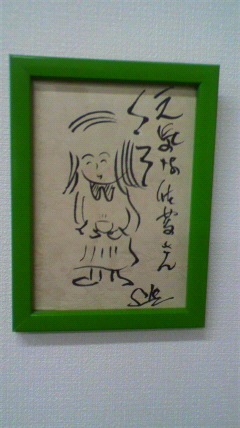 元気な佐藤さん